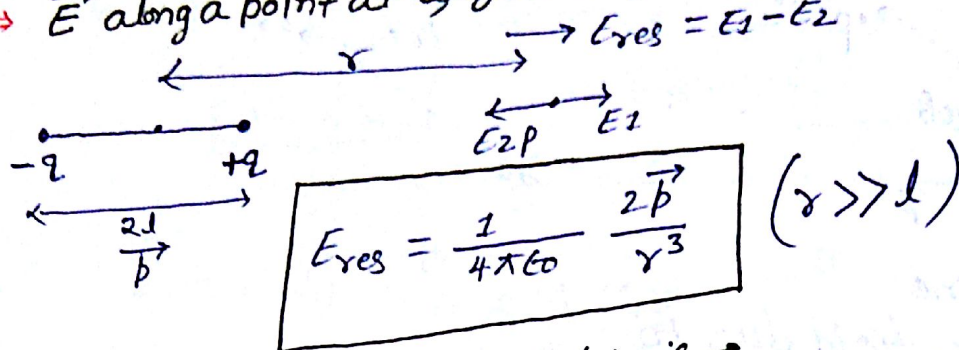 → E along a point
→ Eres = E1 - E2
r
E2 P E1
-q +q
2l
p⃗
Eres = 1/4πϵ0 2p⃗/r³ (r>>l)